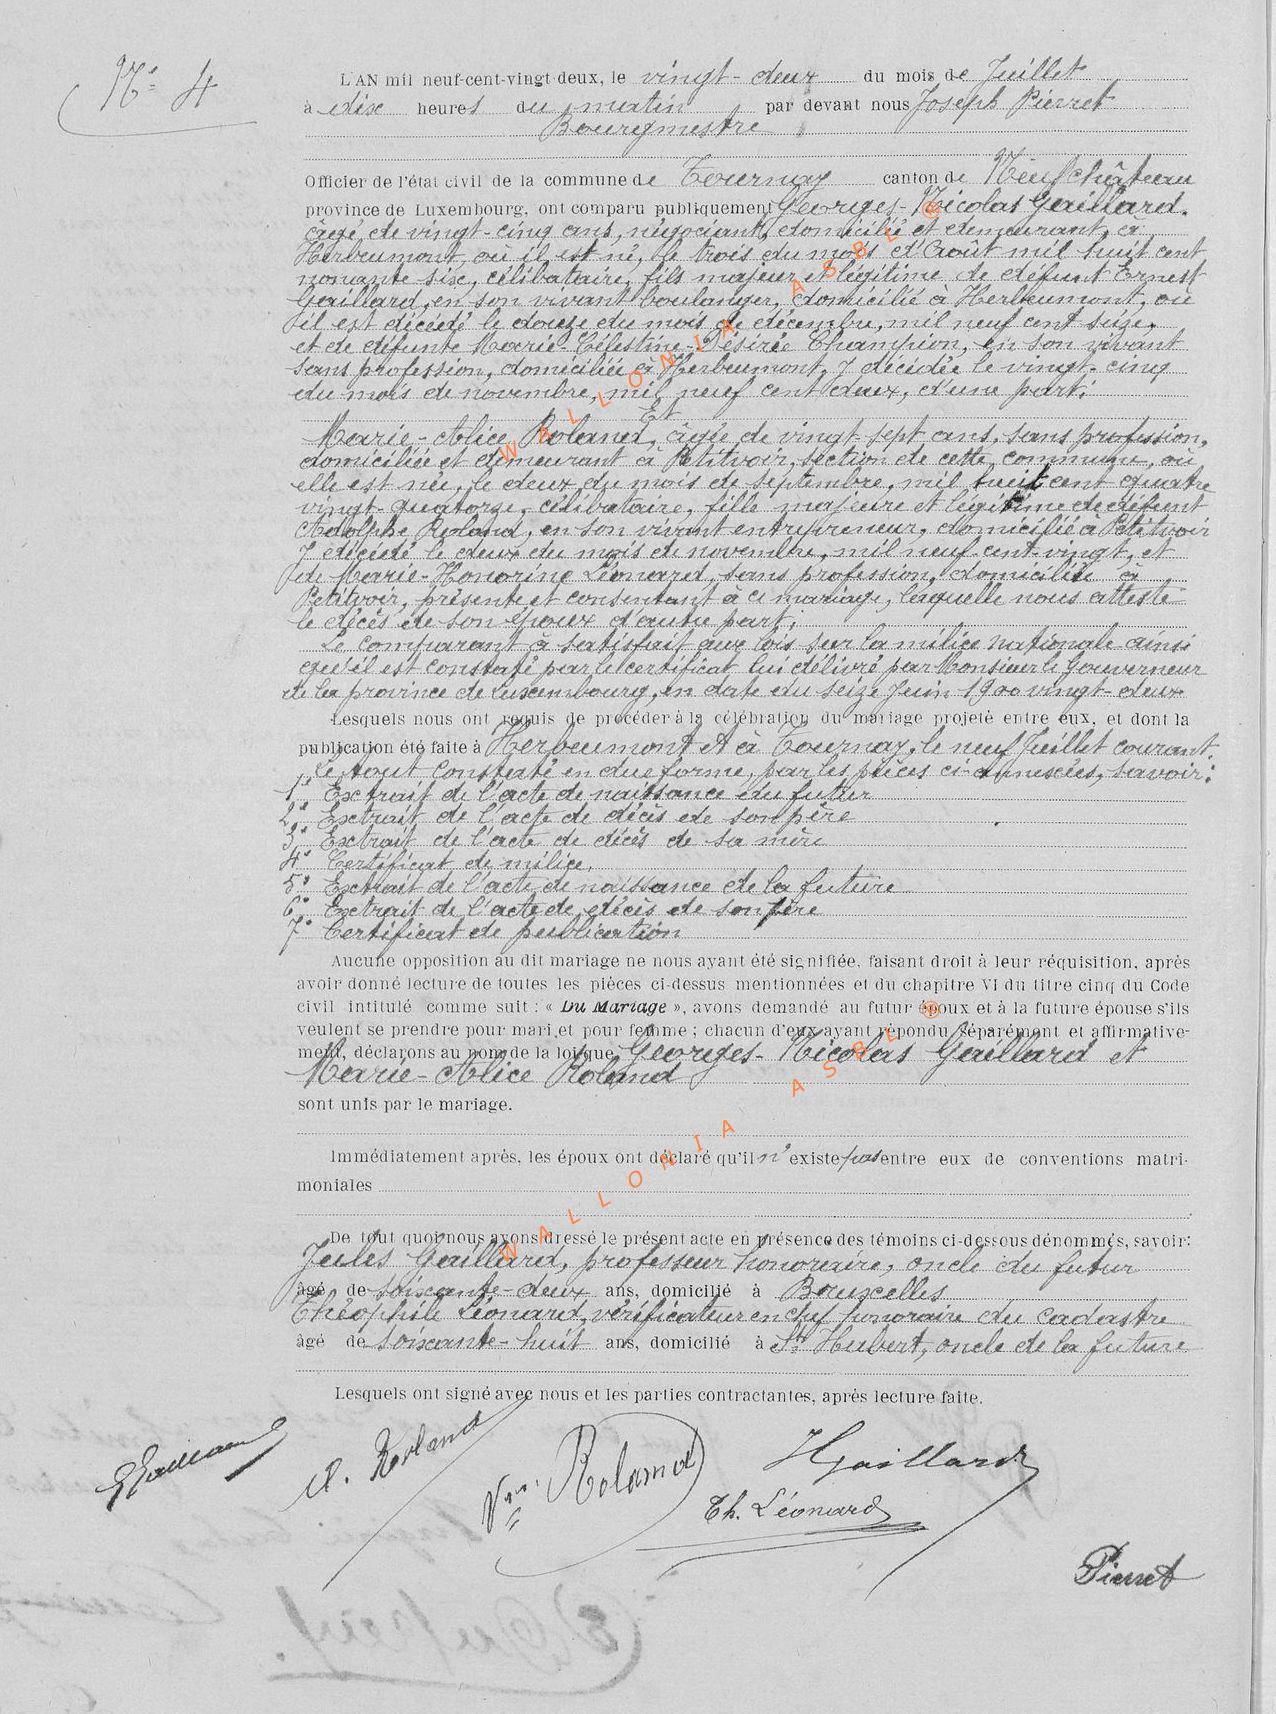 N° 4
L'AN mil neuf-cent-vingt-deux, le vingt-deux du mois de Juillet
à dix heures du matin par devant nous Joseph Pierret
Bourgmestre
Officier de l'état civil de la commune de Tournay canton de Neufchâteau
province de Luxembourg, ont comparu publiquement Georges-Nicolas Gaillard.
âgé de vingt-cinq ans, négociant, domicilié et demeurant à
Herbeumont, où il est né, le trois du mois d'Août mil huit cent
nonante-six, célibataire, fils majeur et légitime de défunt Ernest
Gaillard, en son vivant boulanger, domicilié à Herbeumont, où
il est décédé le douze du mois de décembre, mil neuf cent seize,
et de défunte Marie-Célestine-Désirée Champion, en son vivant
sans profession, domiciliée à Herbeumont, y décédée le vingt-cinq
du mois de novembre, mil neuf cent deux, d'une part;
Et
Marie-Alice Roland, âgée de vingt-sept ans, sans profession,
domiciliée et demeurant à Petitvoir, section de cette commune, où
elle est née, le deux du mois de septembre, mil huit cent quatre
vingt-quatorze, célibataire, fille majeure et légitime de défunt
Adolphe Roland, en son vivant entrepreneur, domicilié à Petitvoir
y décédé le deux du mois de novembre, mil neuf-cent-vingt, et
de Marie-Honorine Léonard, sans profession, domiciliée à
Petitvoir, présente et consentant à ce mariage, laquelle nous atteste
le décès de son époux d'autre part;
Le comparant à satisfait aux lois sur la milice nationale ainsi
qu'il est constaté par le certificat lui délivré par Monsieur le Gouverneur
de la province de Luxembourg, en date du seize Juin 1900 vingt-deux
Lesquels nous ont requis de procéder à la célébration du mariage projeté entre eux, et dont la
publication été faite à Herbeumont et à Tournay, le neuf Juillet courant,
le tout constaté en due forme, par les pièces ci-annexées, savoir:
1° Extrait de l'acte de naissance du futur
2° Extrait de l'acte de décès de son père
3° Extrait de l'acte de décès de sa mère
4° Certificat de milice,
5° Extrait de l'acte de naissance de la future
6° Extrait de l'acte de décès de son père
7° Certificat de publication
Aucune opposition au dit mariage ne nous ayant été signifiée, faisant droit à leur réquisition, après
avoir donné lecture de toutes les pièces ci-dessus mentionnées et du chapitre VI du titre cinq du Code
civil intitulé comme suit : « Du Mariage », avons demandé au futur époux et à la future épouse s'ils
veulent se prendre pour mari et pour femme ; chacun d'eux ayant répondu séparément et affirmative-
ment, déclarons au nom de la loi que Georges-Nicolas Gaillard et
Marie-Alice Roland
sont unis par le mariage.
Immédiatement après, les époux ont déclaré qu'il n'existe pas entre eux de conventions matri-
moniales
De tout quoi nous avons dressé le présent acte en présence des témoins ci-dessous dénommés, savoir:
Jules Gaillard, professeur honoraire, oncle du futur
âgé de soixante-deux ans, domicilié à Bruxelles
Théophile Léonard, vérificateur en chef honoraire du cadastre
âgé de soixante-huit ans, domicilié à St Hubert, oncle de la future
Lesquels ont signé avec nous et les parties contractantes, après lecture faite.
GGaillard A. Roland Vve Roland JGaillard
Th. Léonard
Pierret
WALLONIA ASBL ®
WALLONIA ASBL ®